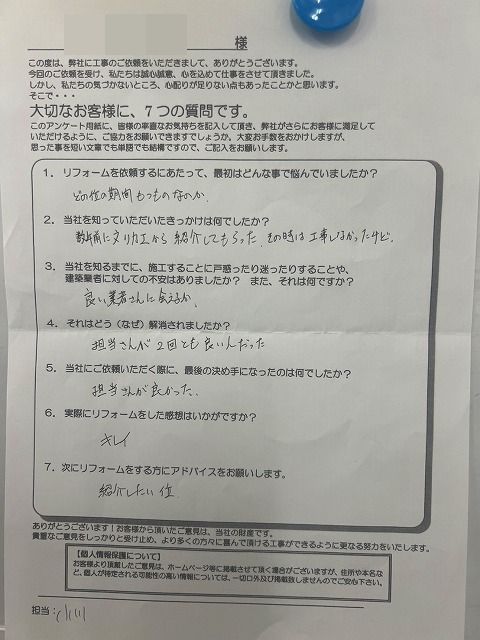 様
この度は、弊社に工事のご依頼をいただきまして、ありがとうございます。
今回のご依頼を受け、私たちは誠心誠意、心を込めて仕事をさせて頂きました。
しかし、私たちの気づかないところ、心配りが足りない点もあったことかと思います。
そこで・・・
大切なお客様に、7つの質問です。
このアンケート用紙に、皆様の率直なお気持ちを記入して頂き、弊社がさらにお客様に満足して
いただけるように、ご協力をお願いできますでしょうか。大変お手数をおかけしますが、
思った事を短い文章でも単語でも結構ですので、ご記入をお願いします。
1. リフォームを依頼するにあたって、最初はどんな事で悩んでいましたか?
どの位の期間もつものなのか
2. 当社を知っていただいたきっかけは何でしたか?
数年前にヌリカエから紹介してもらった その時は工事しなかったけど。
3. 当社を知るまでに、施工することに戸惑ったり迷ったりすることや、
建築業者に対しての不安はありましたか? また、それは何ですか?
良い業者さんに会えるか、
4. それはどう(なぜ)解消されましたか?
担当さんが2回とも良い人だった
5. 当社にご依頼いただく際に、最後の決め手になったのは何でしたか?
担当さんが良かった、
6. 実際にリフォームをした感想はいかがですか?
キレイ
7. 次にリフォームをする方にアドバイスをお願いします。
紹介したい位
ありがとうございます!お客様から頂いたご意見は、当社の財産です。
貴重なご意見をしっかりと受け止め、より多くの方々に喜んで頂ける工事ができるように更なる努力をいたします。
【個人情報保護について】
お客様より頂戴したご意見は、ホームページ等に掲載させて頂く場合がございますが、住所や本名な
ど、個人が特定される可能性の高い情報については、一切口外及び掲載致しませんのでご安心下さい。
担当:小川